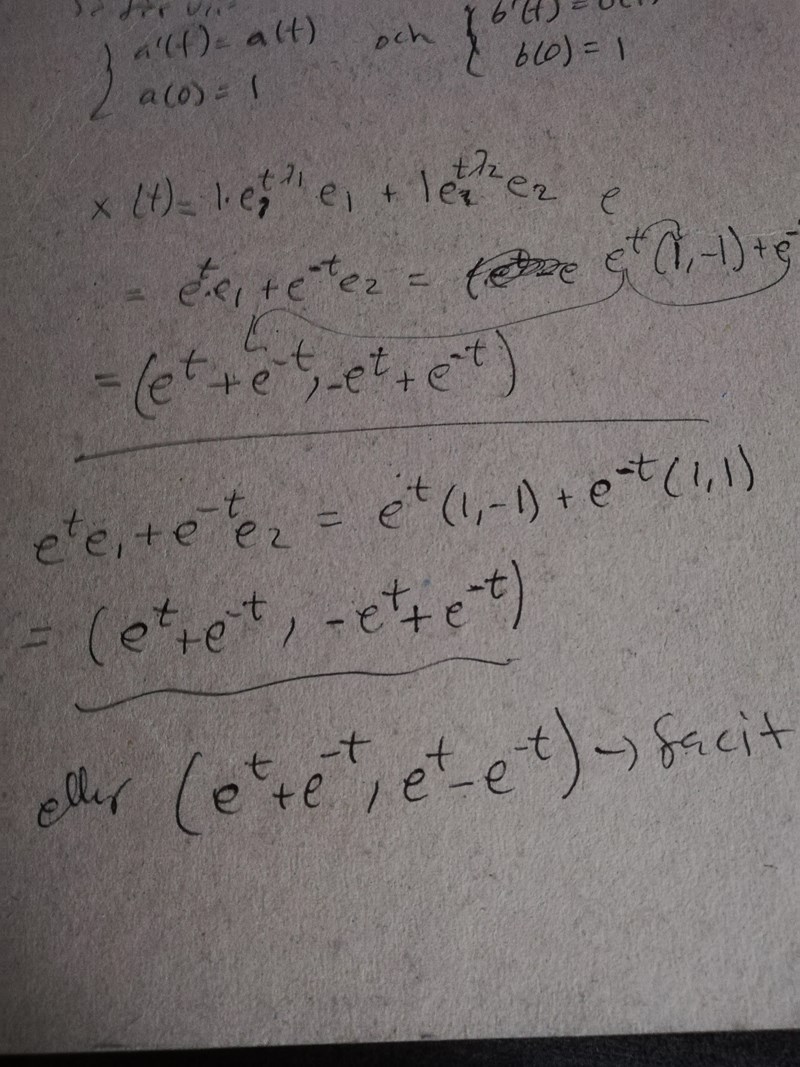 { a'(t) = a(t) och { b'(t) =
a(0) = 1 b(0) = 1
x(t) = 1·e^{tλ1} e1 + 1e^{tλ2} e2 e
= e^t·e1 + e^{-t}e2 = e^t(1,-1) + e^-
= (e^t + e^{-t}, -e^t + e^{-t})
e^t e1 + e^{-t} e2 = e^t (1,-1) + e^{-t} (1,1)
= (e^t + e^{-t}, -e^t + e^{-t})
eller (e^t + e^{-t}, e^t - e^{-t}) → facit